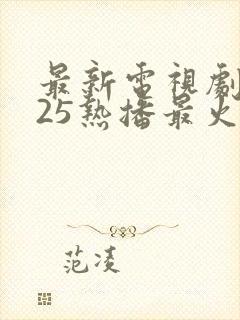 最新電視劇
25熱播最火
范凌